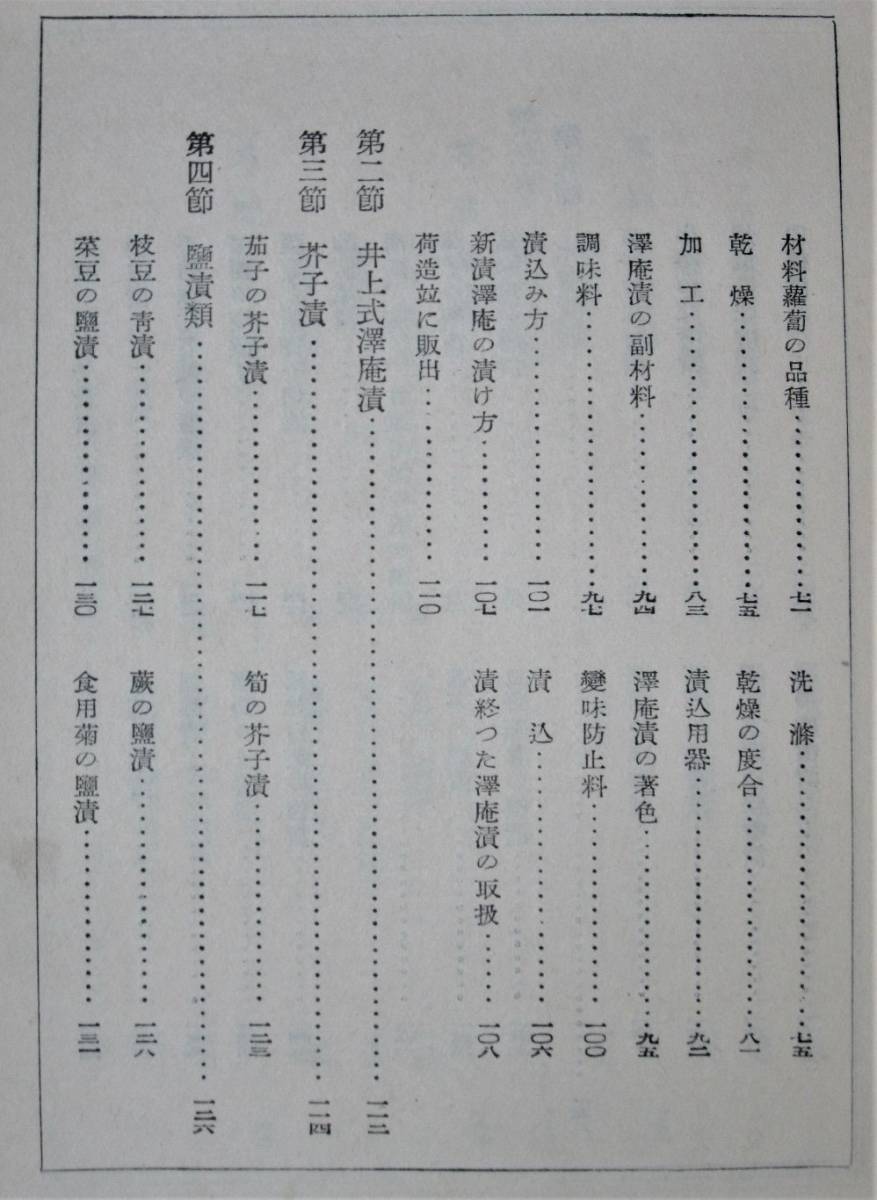 材料蘿蔔の品種……………七一
洗滌……………七五
乾燥……………七五
乾燥の度合……………八一
加工……………八三
漬込用器……………九二
澤庵漬の副材料……………九四
澤庵漬の著色……………九五
調味料……………九七
變味防止料……………一〇〇
漬込み方……………一〇一
漬込……………一〇六
新漬澤庵の漬け方……………一〇七
漬終つた澤庵漬の取扱……一〇八
荷造竝に販出……………一一〇
第二節 井上式澤庵漬……………一一二
第三節 芥子漬……………一一四
茄子の芥子漬……………一一七
筍の芥子漬……………一二三
第四節 鹽漬類……………一二六
枝豆の靑漬……………一二七
蕨の鹽漬……………一二八
菜豆の鹽漬……………一三〇
食用菊の鹽漬……………一三一